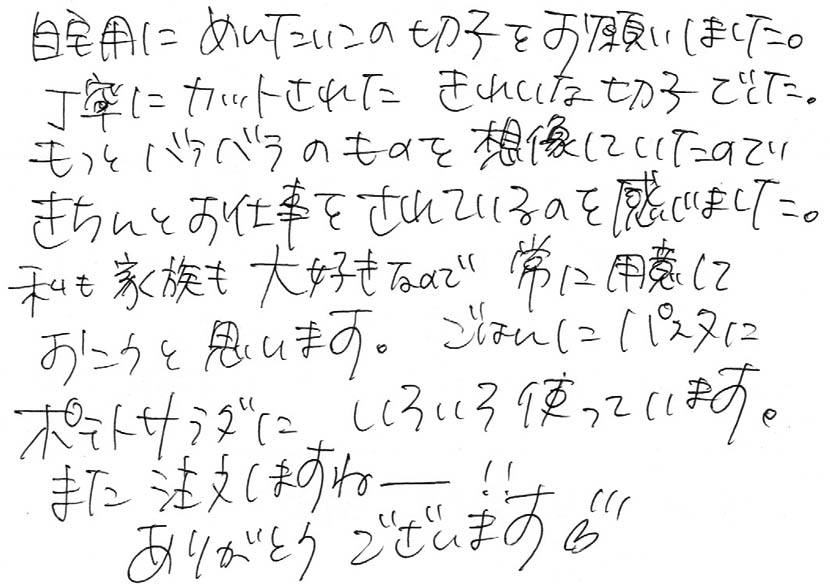 自宅用に めんたいこの切子をお願いしました。
丁寧にカットされた きれいな切子でした。
もっとバラバラのものを想像していたので
きちんとお仕事をされているのを感じました。
私も家族も大好きなので 常に用意して
おこうと思います。 ごはんにパスタに
ポテトサラダに いろいろ使っています。
また注文しますねー!!
ありがとうございます